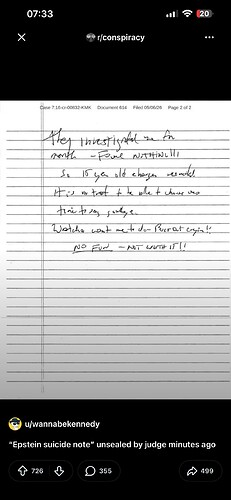 07:33
20
r/conspiracy
Case 7:16-cr-00832-KMK Document 614 Filed 05/06/26 Page 2 of 2
They investigated me for
month — Found NOTHING!!!
So 15 year old charges
It is to be able to
time to say goodbye
want me to do —
NO FUN — NOT WORTH IT!!
u/wannabekennedy
"Epstein suicide note" unsealed by judge minutes ago
726
355
499